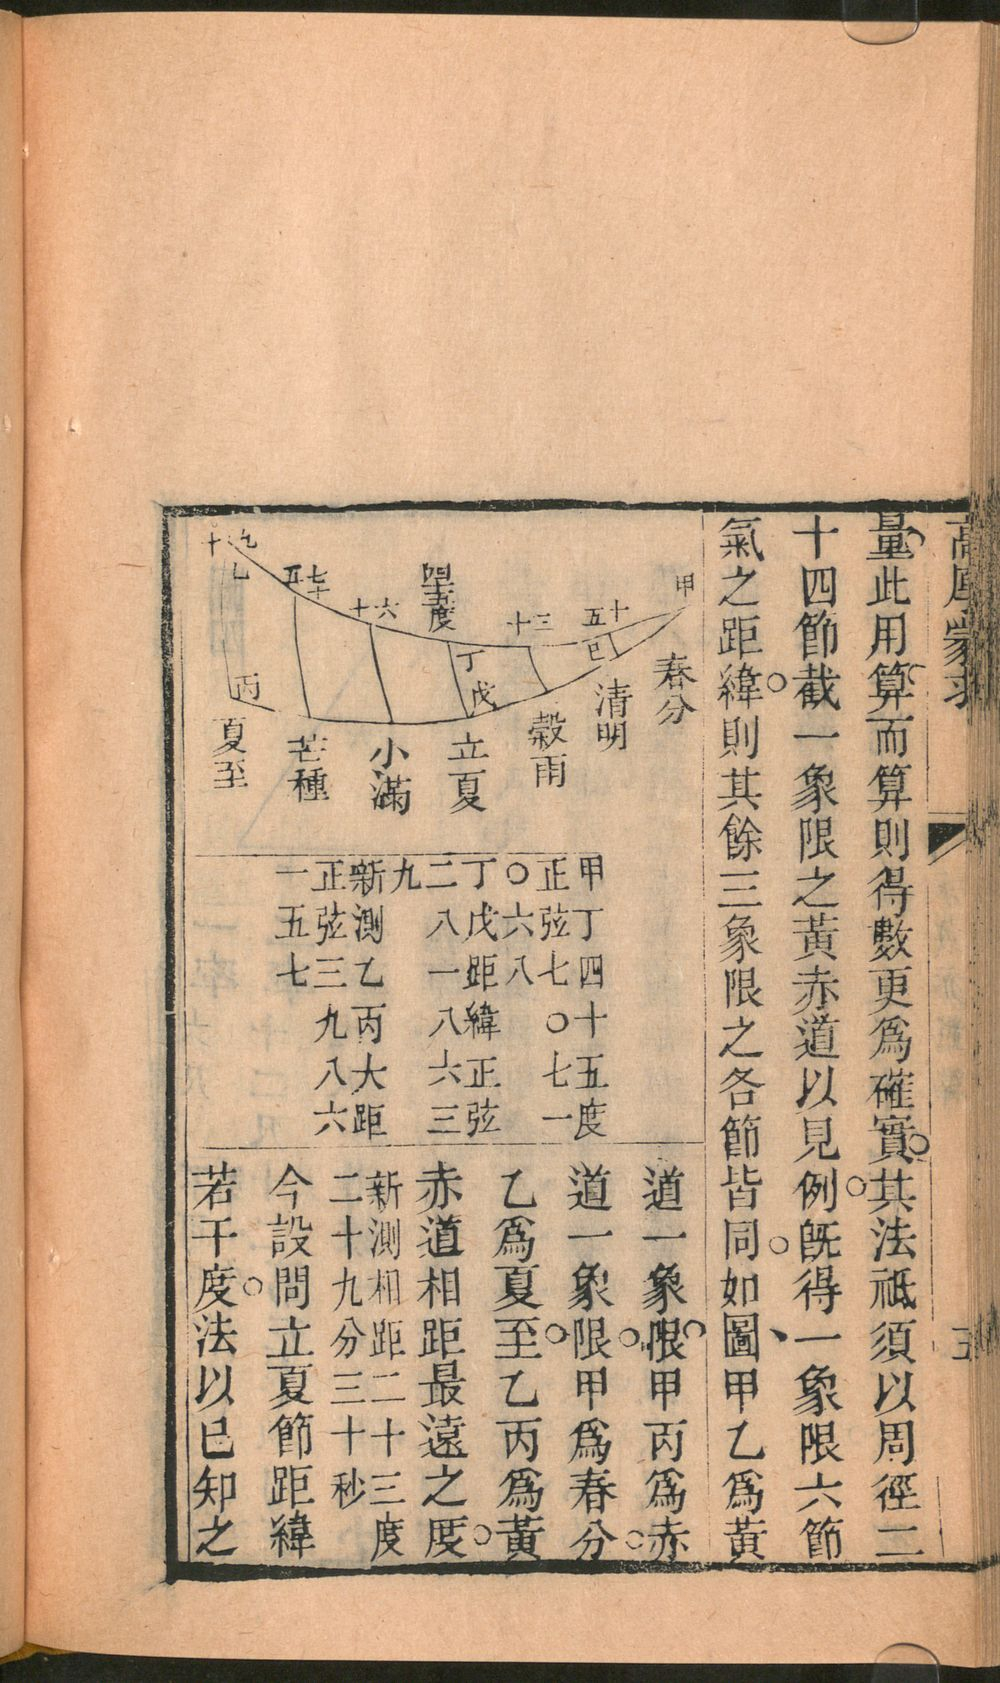 高厚蒙求
五
量此用算而算則得數更爲確實其法祗須以周徑二
十四節截一象限之黃赤道以見例旣得一象限六節
氣之距緯則其餘三象限之各節皆同如圖甲乙爲黃
道一象限甲丙爲赤
道一象限甲爲春分
乙爲夏至乙丙爲黃
赤道相距最遠之度
新測相距二十三度
二十九分三十秒
今設問立夏節距緯
若干度法以已知之
甲
春分
十五
己
清明
三十
穀雨
四十五度
丁
戊
立夏
六十
小滿
七十五
芒種
九十
乙
丙
夏至
甲丁四十五度
正弦七〇七一
〇六八
丁戊距緯正弦
二八一八六三
九
新測乙丙大距
正弦三九八六
一五七